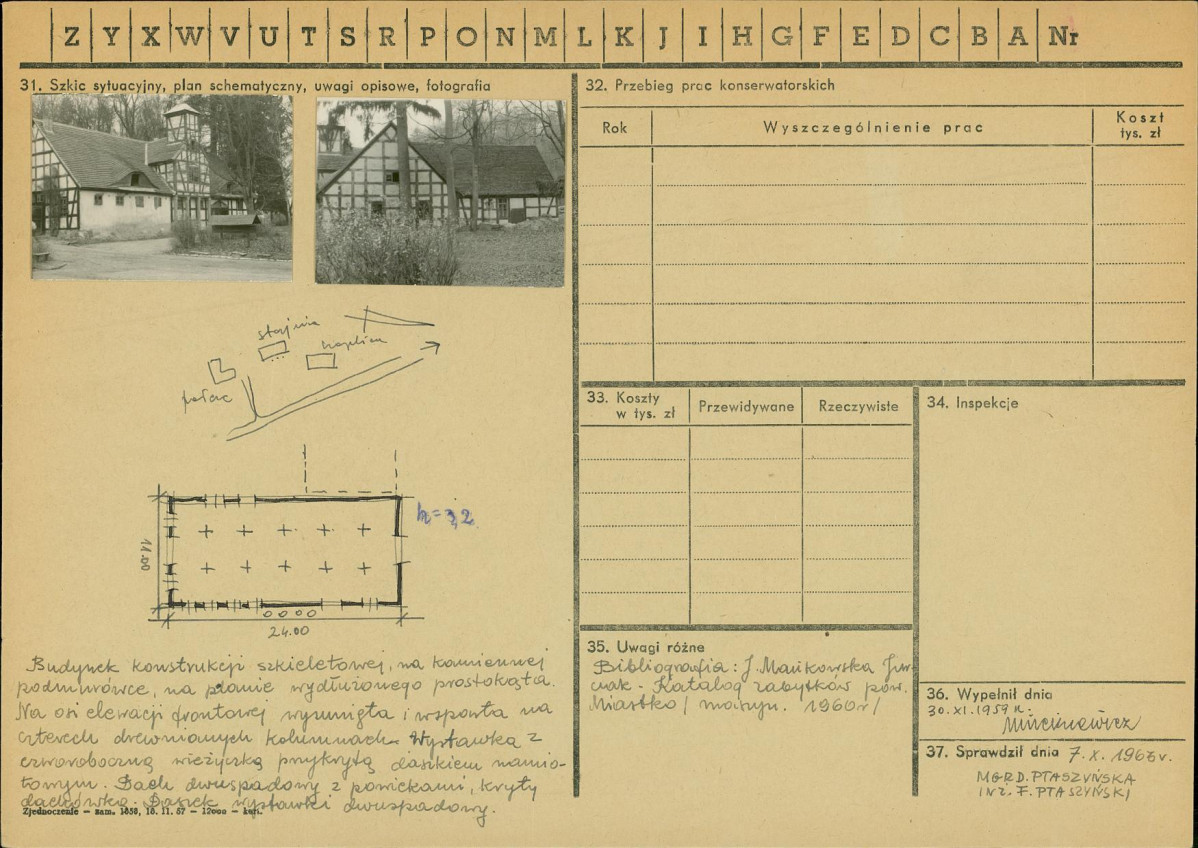 Z Y X W V U T S R P O N M L K J I H G F E D C B A Nr
31. Szkic sytuacyjny, plan schematyczny, uwagi opisowe, fotografia
stajnia
kaplica
pałac
h = 3,2
11.00
24.00
Budynek konstrukcji szkieletowej, na kamiennej
podmurówce, na planie wydłużonego prostokąta.
Na osi elewacji frontowej wysunięta i wsparta na
czterech drewnianych kolumnach Wystawka z
czworoboczną wieżyczką przykrytą daszkiem namio-
towym. Dach dwuspadowy z powiekami, kryty
dachówką. Daszek wystawki dwuspadowy.
Zjednoczenie — zam. 1858, 18. 11. 57 — 12000 — kart.
32. Przebieg prac konserwatorskich
Rok
Wyszczególnienie prac
Koszt
tys. zł
33. Koszty
w tys. zł
Przewidywane
Rzeczywiste
34. Inspekcje
35. Uwagi różne
Bibliografia: J. Mańkowska
Katalog zabytków pow.
Miastko / maszyn. 1960r /
36. Wypełnił dnia
30. XI. 1959 r.
37. Sprawdził dnia 7. X. 1963r.
MGR D. PTASZYŃSKA
INŻ. F. PTASZYŃSKI